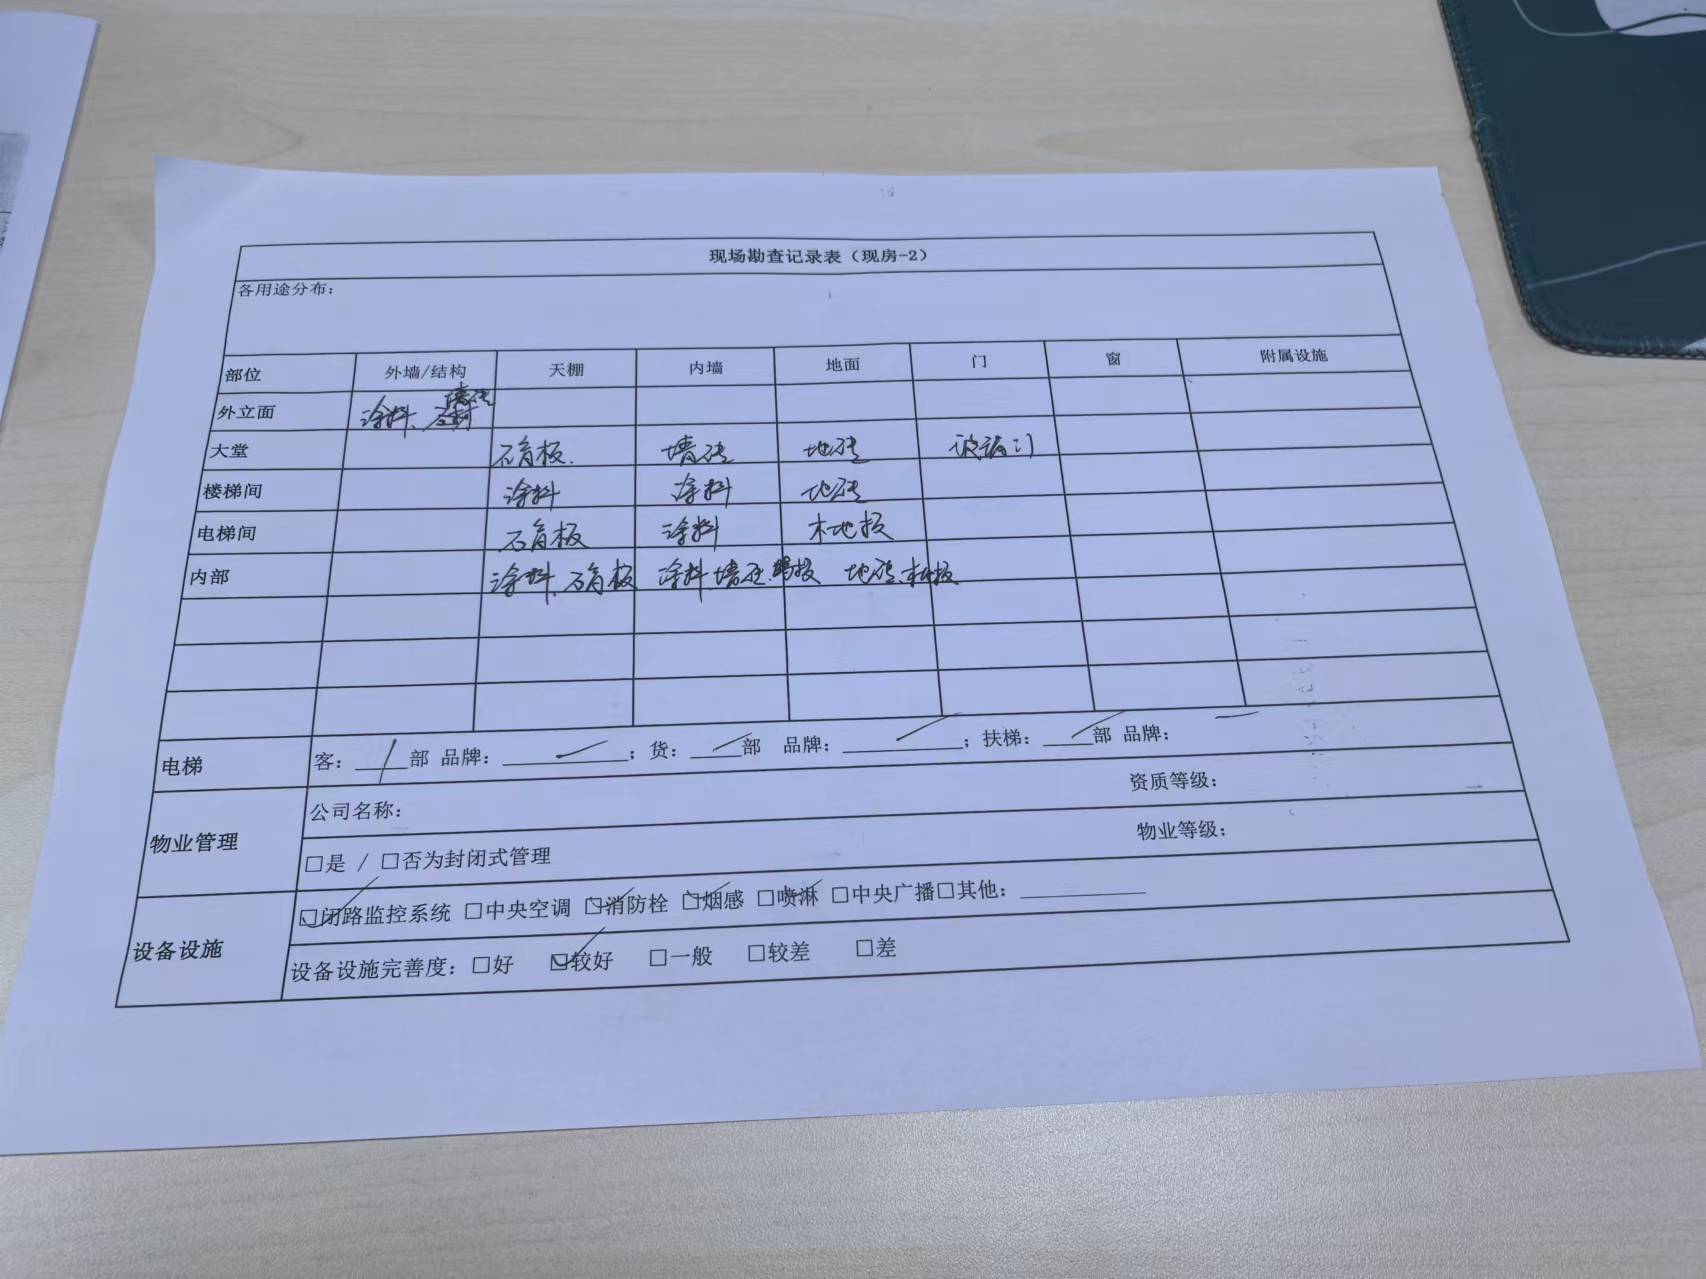 现场勘查记录表（现房-2）
各用途分布：
部位 外墙/结构 天棚 内墙 地面 门 窗 附属设施
外立面 涂料、墙砖
大堂 石膏板 墙砖 地砖 玻璃门
楼梯间 涂料 涂料 地砖
电梯间 石膏板 涂料 木地板
内部 涂料、石膏板 涂料、墙砖、 地砖、木地板
电梯 客：/部 品牌：/；货：/部 品牌：/；扶梯：/部 品牌：/
物业管理
公司名称： 资质等级：
□是 / □否为封闭式管理 物业等级：
设备设施
☑闭路监控系统 □中央空调 ☑消防栓 ☑烟感 ☑喷淋 □中央广播□其他：
设备设施完善度：□好 ☑较好 □一般 □较差 □差